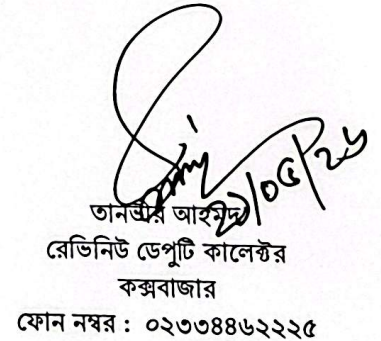 ২১/০৫/২৬
তানভীর আহমেদ
রেভিনিউ ডেপুটি কালেক্টর
কক্সবাজার
ফোন নম্বর : ০২৩৩৪৪৬২২২৫